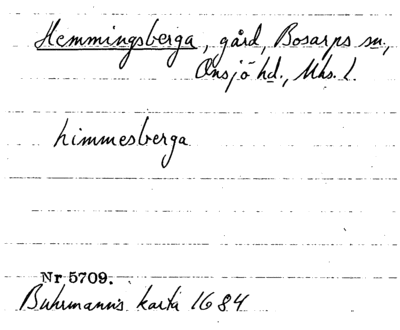 Hemmingsberga, gård, Bosarps sn,
Onsjö hd., Mhs. l.
himmesberga
Nr 5709.
Buhrmann's karta 1684